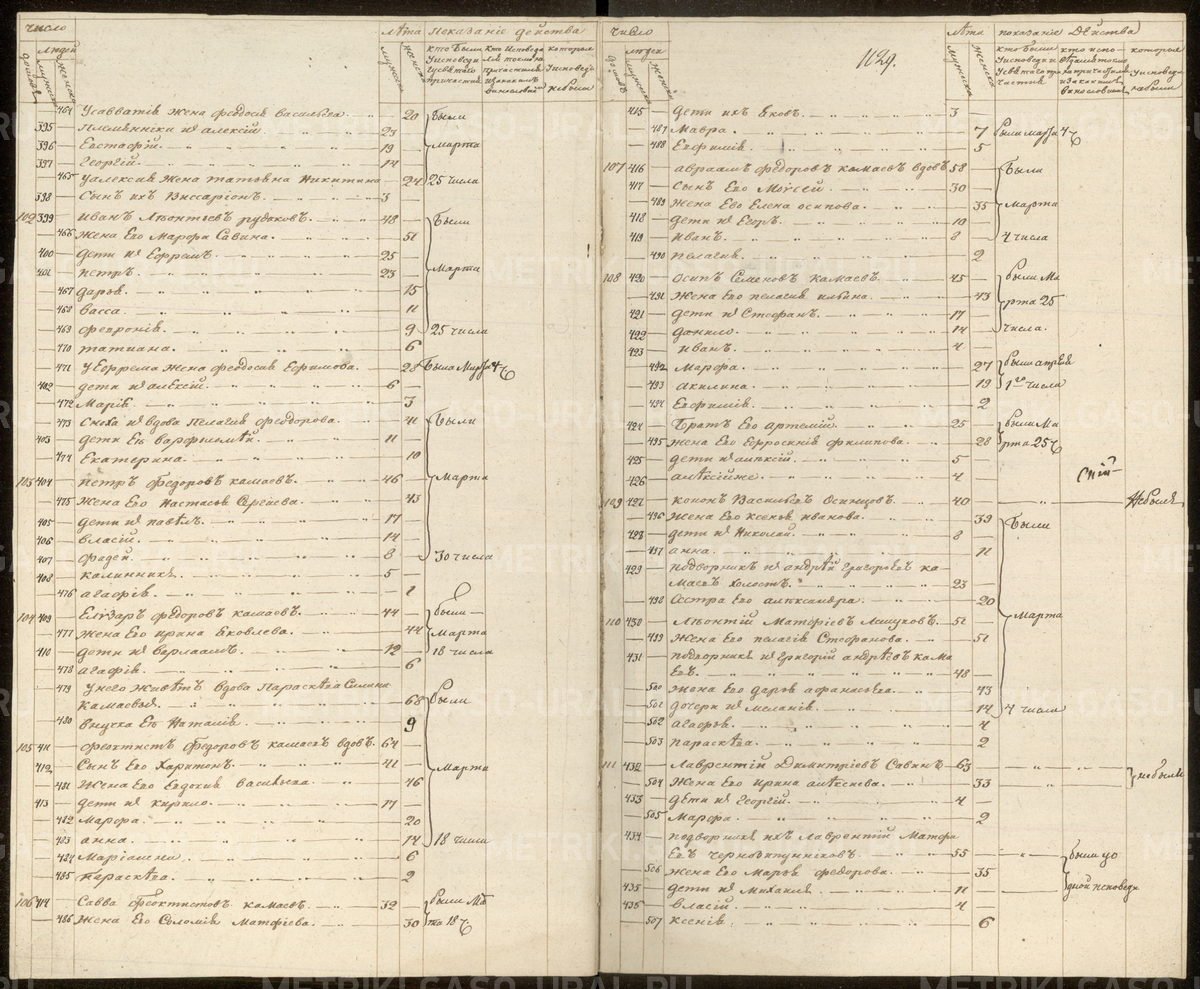 число лѣта Показаніе действа
людей
дворовъ мужска женска мужска женска кто были уисповеди исвятаго причастия кто исповедались токмо а непричастилися и закакимъ винословиемъ которыя уисповеди небыли
464 Усавватія жена Феодосія Васильева 20 Были
395 Племянники ихъ Алексій 23
396 Евстафій 19 Марта
397 Георгій 14
465 Уалексія жена Татьяна Никитина 24 25 числа
398 Сынъ ихъ Виссаріонъ 3
102 399 Иванъ Леонтьевъ Рудаковъ 48 Были
466 Жена Его Марфа Савина 51
400 Дети ихъ Ефремъ 25
401 Петръ 23 Марта
467 Дарья 15
468 Васса 11
469 Феврония 9 25 числа
470 Татиана 6
471 УЕфрема жена Феодосія Ефимова 28 Была Мар 4
402 Дети ихъ Алексій 6
472 Марія 3
473 Сноха ихъ вдова Пелагия Феодорова 41 Были
403 Дети Ея Варфоломей 11
474 Екатерина 10
103 404 Петръ Федоровъ Камаевъ 46 Марта
475 Жена Его Настасья Сергіева 43
405 Дети ихъ Павелъ 17
406 Власій 14
407 Фадей 8 30 числа
408 Калинникъ 5
476 Агафія 1
104 409 Елизаръ Федоровъ Камаевъ 44 были
477 Жена Его Ирина Яковлева 44 Марта
410 Дети ихъ Варлаамъ 12 18 числа
478 Агафія 6
479 Унего живетъ вдова Параскева
Камаевыхъ 68 Были
480 Внучка Ея Наталія 9
105 411 Феоктистъ Федоровъ Камаевъ вдовъ 64
412 Сынъ Его Харитонъ 41 Марта
481 Жена Его Евдокия Васильева 46
413 Дети ихъ Кирило 17
482 Марфа 20
483 Анна 14 18 числа
484 Маріамна 6
485 Параскева 2
106 414 Савва Феоктистовъ Камаевъ 32 были Ма
486 Жена Его Соломия Матфіева 30 рта 18
число 1129. лѣта показаніе Действа
людей
дворовъ мужска женска мужска женска кто были уисповеди и святаго причастия кто исповедались токмо а непричастилися и закакимъ винословиемъ которые уисповеди небыли
415 Дети ихъ Яковъ 3
487 Мавра 7 были марта 4
488 Евфимія 5
107 416 Авраамъ Федоровъ Камаевъ вдовъ 58 Были
417 Сынъ Его Моисей 30
489 Жена Его Елена Осипова 35 Марта
418 Дети ихъ Егоръ 10
419 Иванъ 8 4 числа
490 Пелагия 2
108 420 Осипъ Семеновъ Камаевъ 45 были Ма
491 Жена Его Пелагия Ильина 43 рта 25
421 Дети ихъ Стефанъ 17
422 Данило 14 числа.
423 Иванъ 4
492 Марфа 27 были апреля
493 Акилина 19 1го числа
494 Евфимія 2
424 Братъ Его Артемій 25 были Ма
495 Жена Его Ефросинія Филипова 28 рта 25
425 Дети ихъ Алексій 5
426 Алексійже 4
109 427 Кононъ Васильевъ Осинцовъ 40 Небылъ
496 Жена Его Ксенья Иванова 39 Были
428 Дети ихъ Николай 8
497 Анна 11
429 Подворникъ ихъ Андрей Григорьевъ Ка-
маевъ холостъ 23
498 Сестра Его Александра 20
110 430 Леонтій Матфіевъ 51 Марта
499 Жена Его Пелагія Стефанова 51
431 Подворникъ ихъ Григорій Андреевъ Кама
евъ 48
500 Жена Его Дарья Афанасьева 43
501 Дочери ихъ Меланія 14 4 числа
502 Агафья 4
503 Параскева 2
111 432 Лаврентій Димитріевъ Савинъ 63 небыли
504 Жена Его Ирина Алексеева 33
433 Дети ихъ Георгій 4
505 Марфа 2
434 Подворникъ ихъ Лаврентій Матфи
евъ 55 были уо
506 Жена Его Марья Федорова 35 дной исповеди
435 Дети ихъ Михаила 11
436 Власій 4
507 Ксенія 6
METRIKI.GASO-URAL.RU